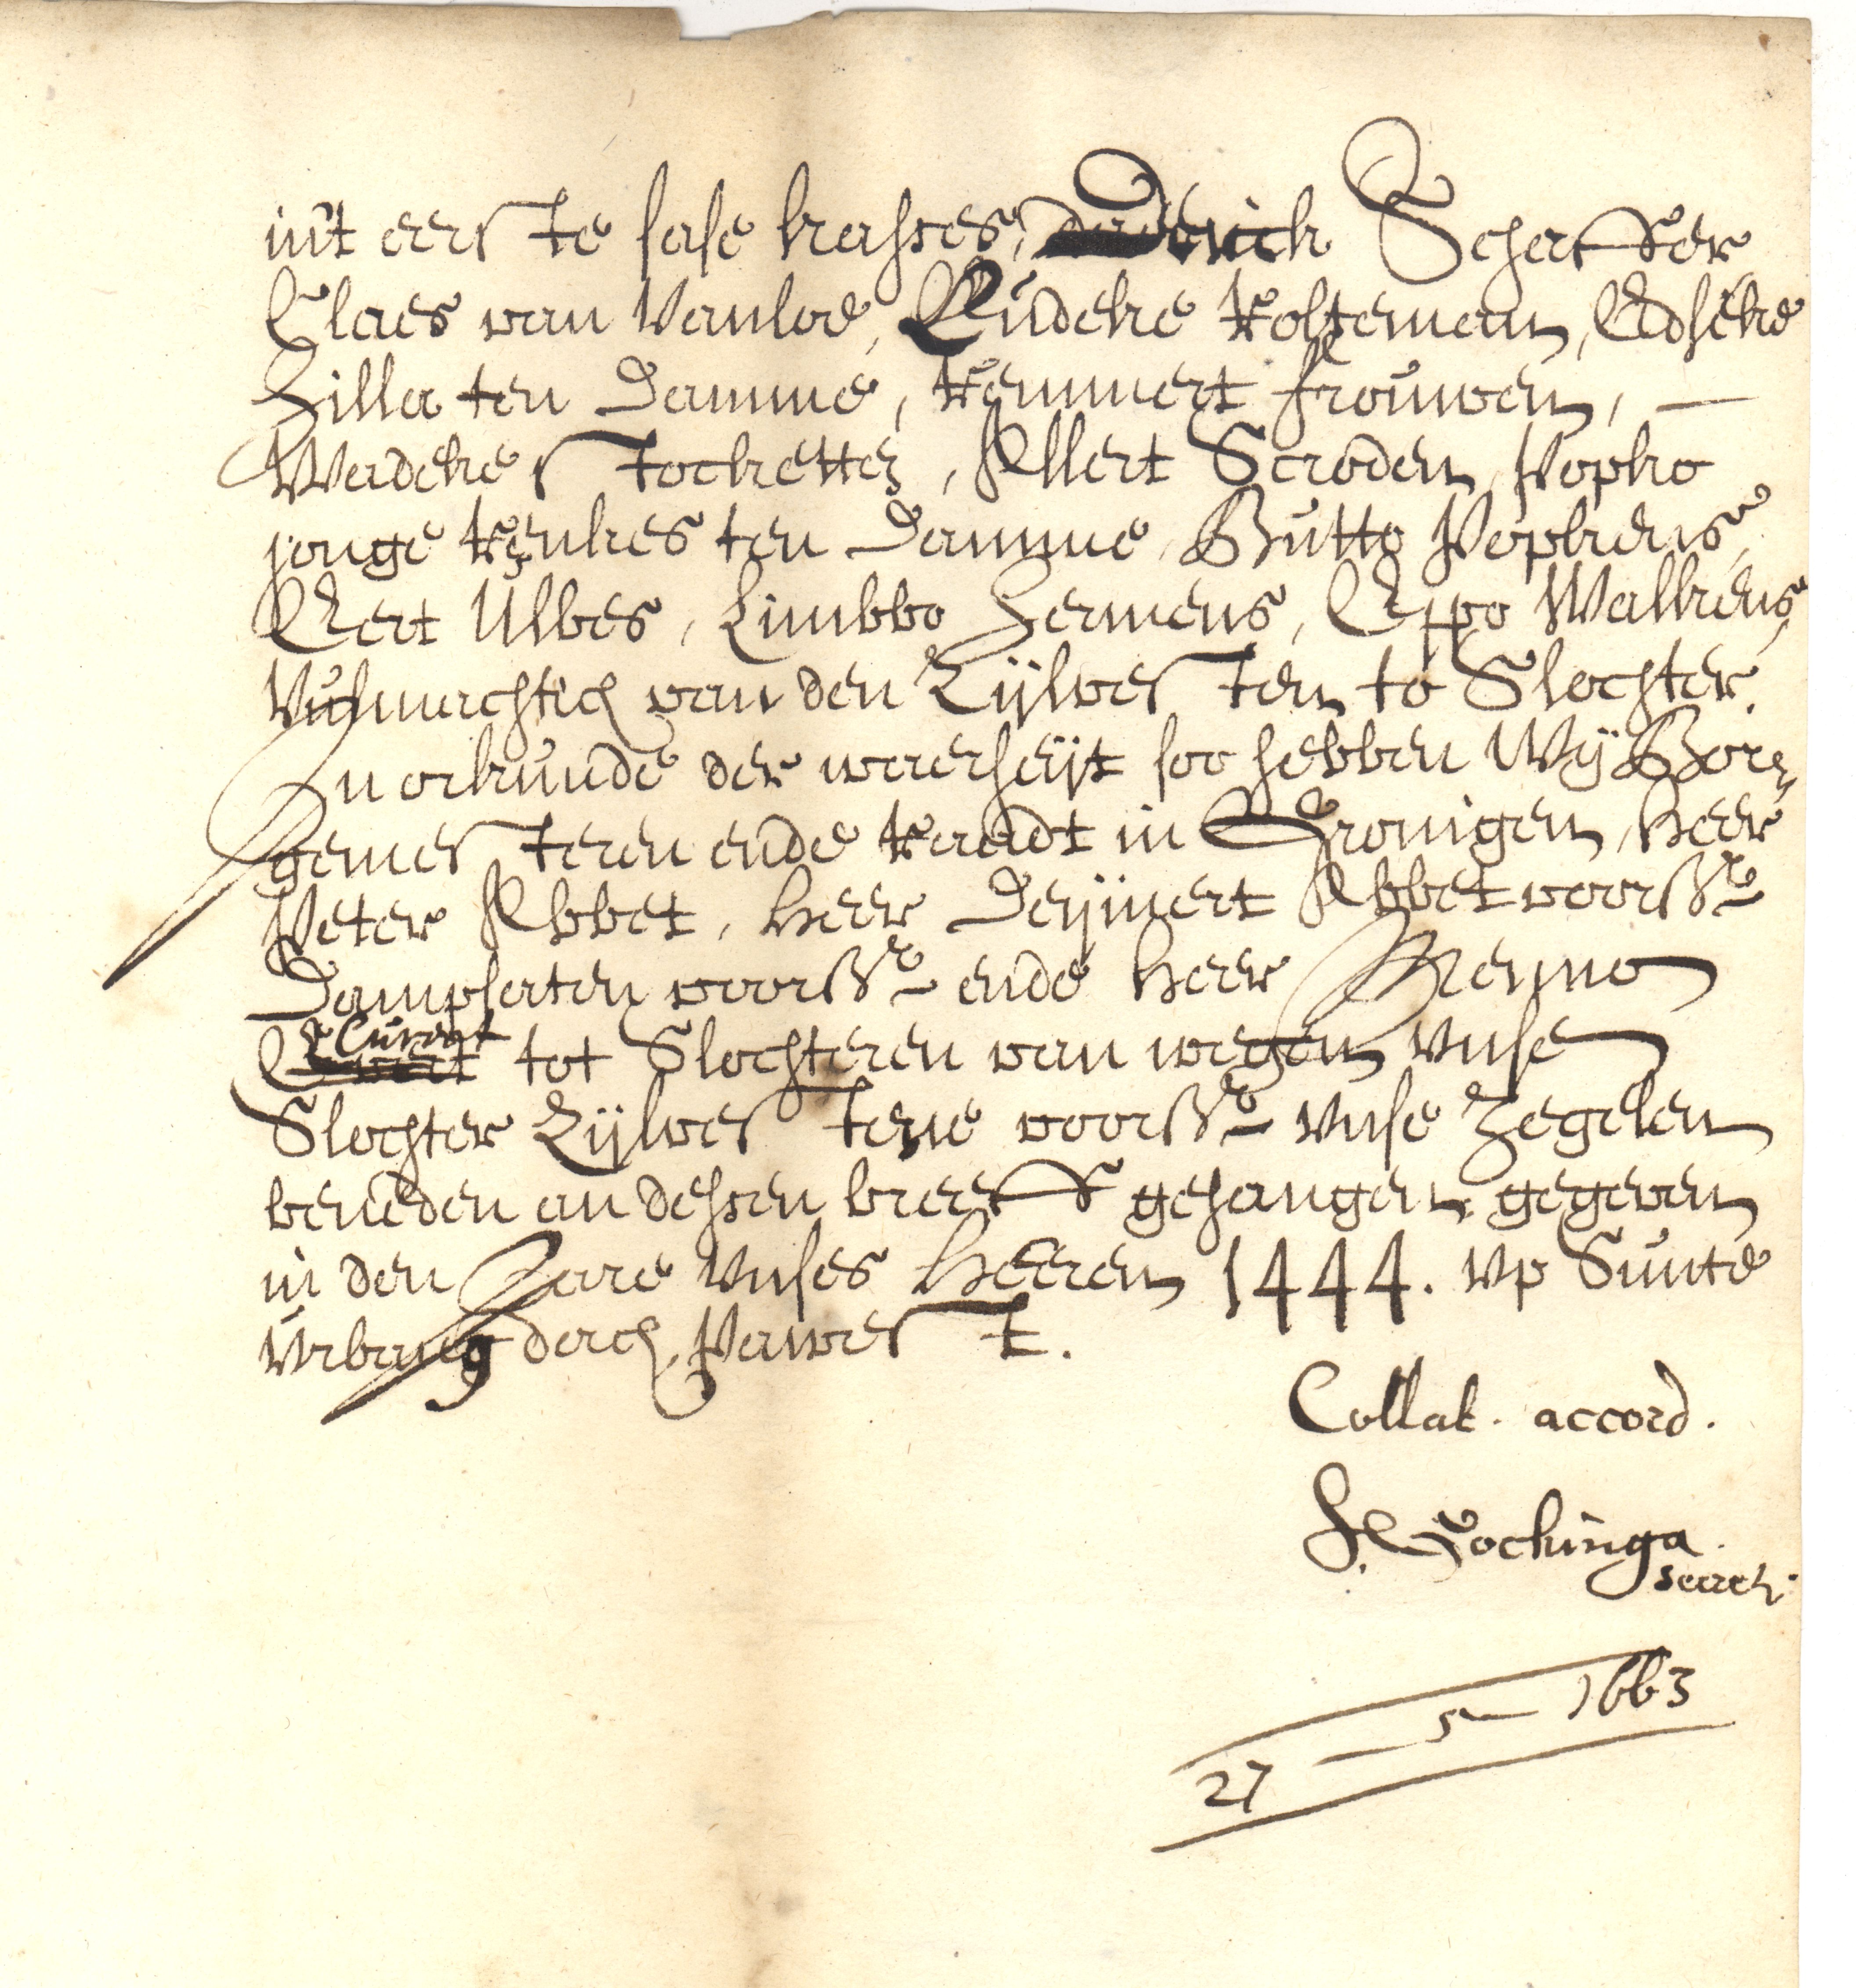 int eerste hase kasses, Diderick Schaffer
Claes van Vanloe, Ludeke Koltemein, Edseke
Zilla ten Damme, Remmert frouwen, —
Wadeke Stockettes, Allert Scroden, Popko
jonge Renkes ten Damme, Butto Popkens,
Evert Ulbes, Limbbo Hermens, Eppo Walkens
Vulmachtich van den Zijlvesten to Slochter.
In orkunde der waerheijt soo hebben Wij Bor-
gemesteren ende Raedt in Gronigen, Heer
Peter Abbet, Heer Deijnert Abbet voorss.
Dampsaten voorss. ende Heer Menno
Curaet tot Slochteren van wegen unse
Slochter Zijlvestene voorss. unse Zegelen
beneden an dessen breeff gehangen, gegeven
in den Jare unses Heeren 1444. up Sunte
Urbanus dach, Pawest.
Collat. accord.
Gockinga
secret.
27 — 5 — 1663